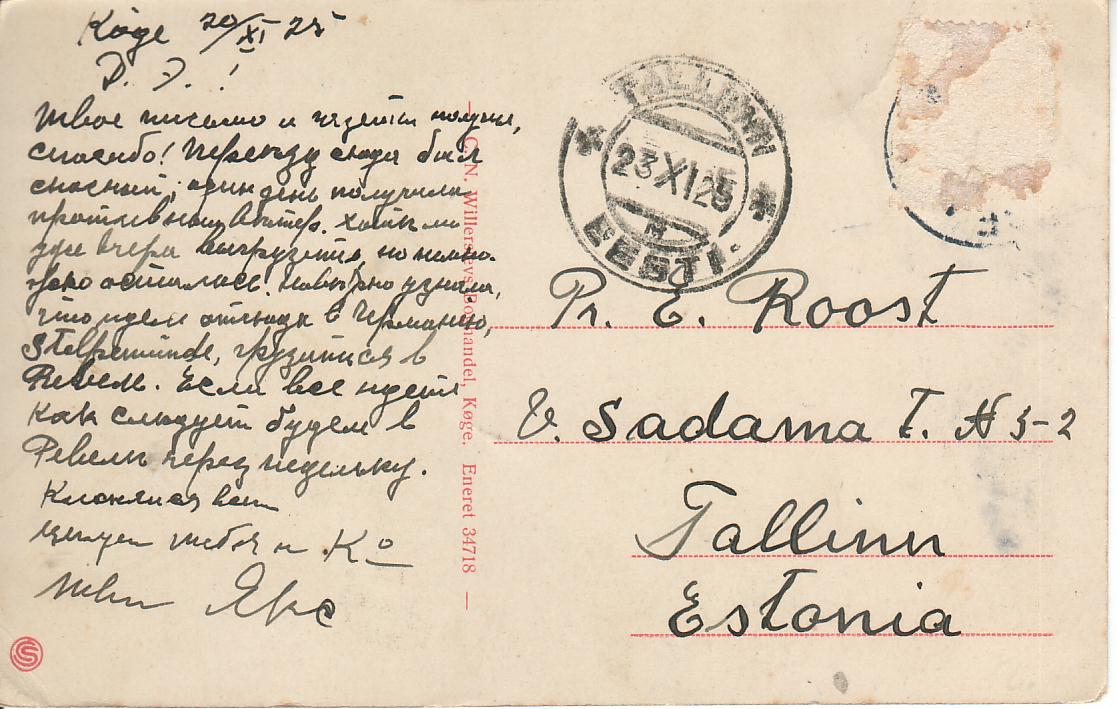 Køge 20/XI 25
Д. Э. !
Твое письмо и газеты получил,
спасибо! Переход сюда был
сносный, один день получили
противный ветер. Хотели
уже вчера выгрузится, но немно-
жко осталось. Наверно узнала,
что идем отсюда в Германию,
Stolpemünde, грузится в
Ревель. Если все идет
как следует будем в
Ревеле через недельку.
Кланяйся всем
целую тебя и Кº
твой Якс
— C. N. Willers Boghandel, Køge. Eneret 34718 —
TALLINN
23 XI 25
EESTI
Pr. E. Roost
V. Sadama T. N 5-2
Tallinn
Estonia
S